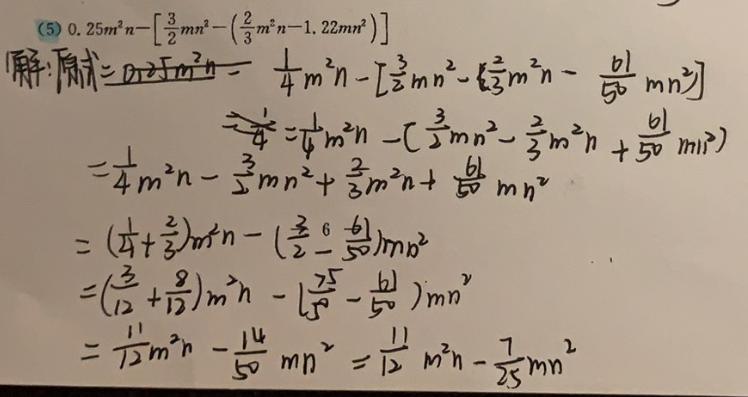 (5) 0.25m²n-[3/2mn²-(2/3m²n-1.22mn²)]
解:原式=0.25m²n- 1/4m²n-[3/2mn²-(2/3m²n-61/50mn²)]
=1/4=1/4m²n-(3/2mn²-2/3m²n+61/50mn²)
=1/4m²n-3/2mn²+2/3m²n+61/50mn²
=(1/4+2/3)m²n-(3/2 6-61/50)mn²
=(3/12+8/12)m²n-(75/50-61/50)mn²
=11/12m²n-14/50mn²=11/12m²n-7/25mn²